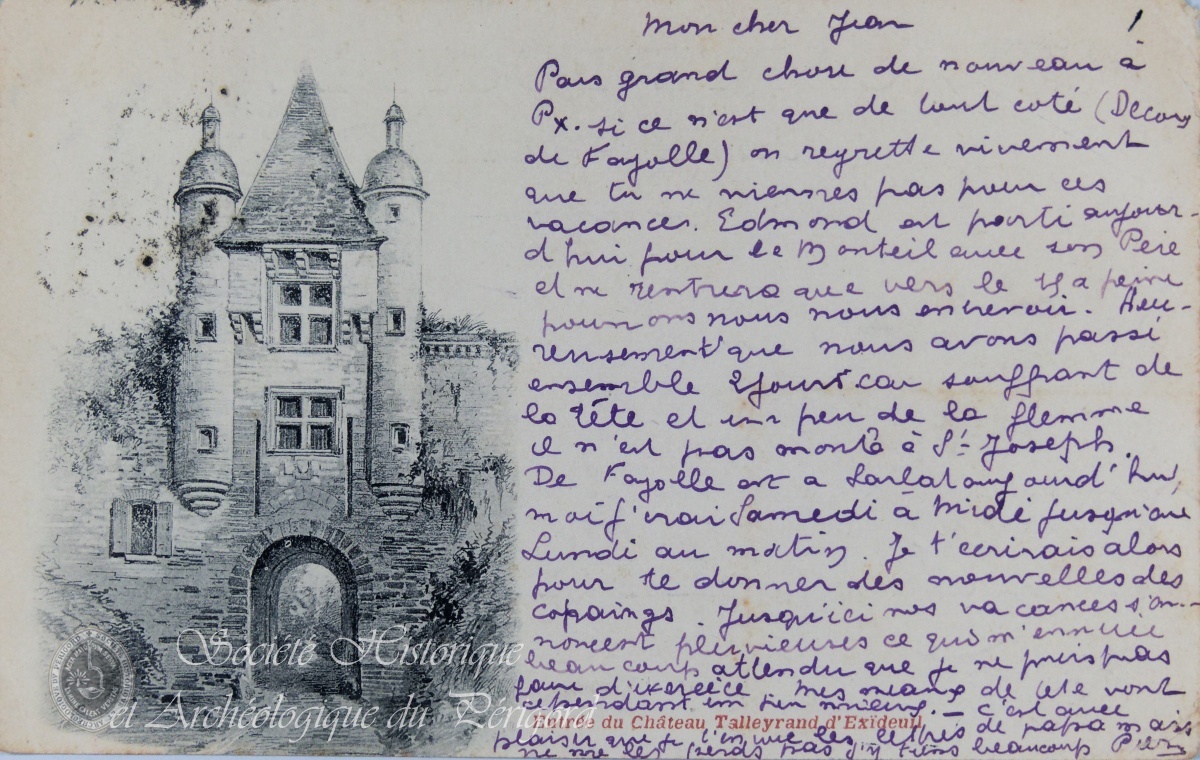 Mon cher Jean
Pas grand chose de nouveau à
Px. si ce n'est que de tout coté (Decoux
de Fayolle) on regrette vivement
que tu ne viennes pas pour ces
vacances. Edmond est parti aujour
d'hui pour le Monteil avec son Père
et ne rentrera que vers le 15 a peine
pourrons nous nous entrevoir. Heu-
reusement que nous avons passé
ensemble 2 jours car souffrant de
la tête et un peu de la flemme
il n'est pas monté à St. Joseph.
De Fayolle est a Sarlat aujourd'hui,
moi j'irai Samedi à Midi jusqu'au
Lundi au matin. Je t'ecrirais alors
pour te donner des nouvelles des
copaings. Jusqu'ici mes vacances s'an-
noncent pluvieuses ce qui m'ennuie
beaucoup attendu que je ne puis pas
faire d'exercice. Mes maux de tete vont
cependant un peu mieux. — c'est avec
plaisir que je t'envoie les lettres de papa mais
ne me les perds pas j'y tiens beaucoup
Entrée du Château Talleyrand d'Exideuil
Société Historique
et Archéologique du Périgord